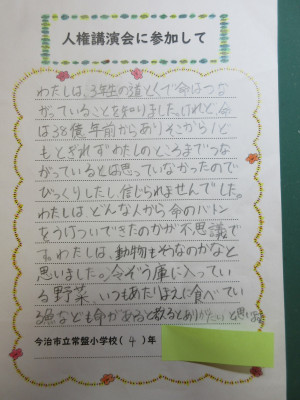 人権講演会に参加して
わたしは、3年生の道とくで命はつな
がっていることを知りました。けれど、命
は38億年前からありそこから1と
もとぎれずわたしのところまでつな
がっているとは思っていなかったので
びっくりしたし信じられませんでした。
わたしはどんな人から命のバトン
をうけついできたのかが不思議で
す。わたしは、動物もそうなのかなと
思いました。冷ぞう庫に入ってい
る野菜、いつもあたりまえに食べてい
る魚なども命があると教るとありがたいと思いま
今治市立常盤小学校(4)年